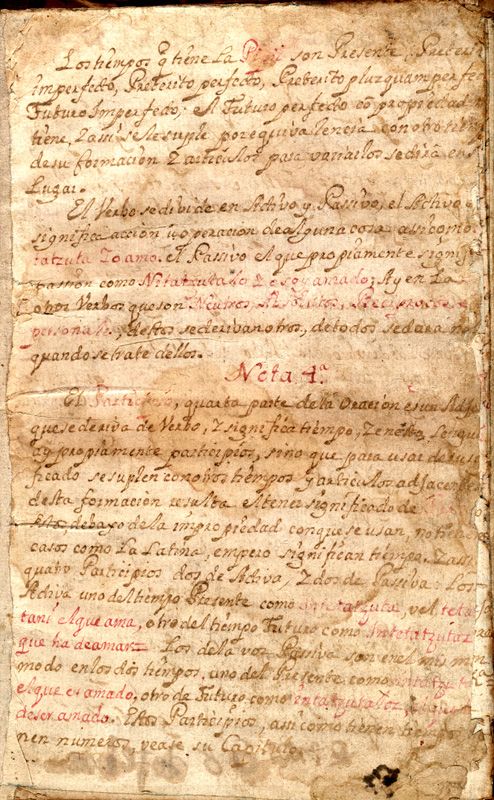 Los tiempos q̃ tiene La son Presente, Preter
imperfecto, Preterito perfecto, Preterito plusquamperfe
Futuro Imperfecto; el Futuro perfecto cõ propiedad
tiene, Z assi se le suple por equivalencia con otro
de su formacion Z articulos para variarlos se dirá en s
Lugar.
El Verbo se divide en Activo y Passivo, el Activo
significa accion ù operacion de alguna cosa assi como
tatzuta Zo amo. el Passivo el que propiamente signifi
passion como Z e soy amado; Ay en La
otros Verbos que son Neutros,
personales, destos se derivan otros, de todos se dara
quando se trate dellos.
Nota 4ª
El Participio, quarta parte de la Oracion es un
que se deriva de Verbo, Z significa tiempo, Z en esta Lengu
ay propiamente participios, sino que para usar de su
ficado se suplen con otros tiempos y articulos adjacentes
desta formacion resulta el tener significado de
esto, debaxo de la impropiedad con que se usan, no tienen
casos como La Latina, empero significan tiempo. Z assi
quatro Participios dos de Activa, Z dos de Passiva: Los
Activa uno del tiempo Presente como vel
tani el que ama, otro del tiempo Futuro como
que ha de amar. Los de la voz Passiva son en el mismo
modo en los dos tiempos, uno del Presente como
el que es amado, otro de Futuro como
de ser amado. Estos Participios, assi como tienen tiempos
nen numeros, vease su Capitulo.